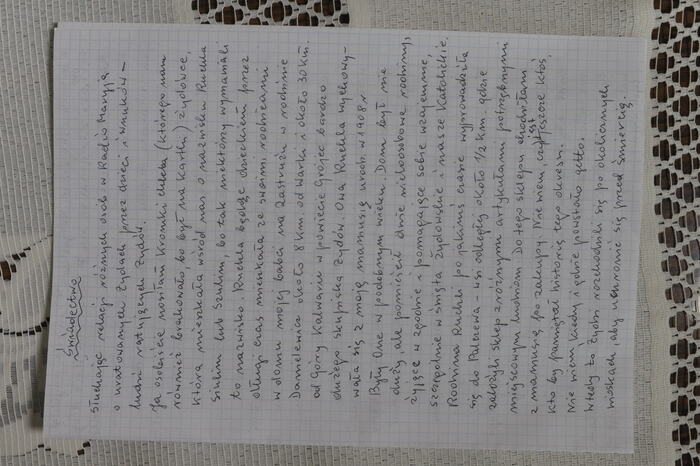 Świadectwo
Słuchając relacji różnych osób w Radio Maryja
o uratowanych Żydach przez dzieci i wnuków –
ludzi ratujących Żydów.
Ja osobiście nosiłam kromki chleba (którego nam
również brakowało bo był na kartki) Żydówce,
która mieszkała wśród nas o nazwisku Ruchla
Siulim lub Szulim, bo tak niektórzy wymawiali
to nazwisko. Ruchla będąc dzieckiem przez
długi czas mieszkała ze swoimi rodzicami
w domu mojej babci na Zastrużu w rodzinie
Danielewicz około 8 km. od Warki i około 30 km.
od Góry Kalwarii w powiecie Grójec bardzo
dużego skupiska Żydów. Owa Ruchla wychowy-
wała się z moją mamusią urodz. w 1908 r
Były One w podobnym wieku. Dom był nie
duży, ale pomieścił dwie wieloosobowe rodziny,
żyjące w zgodzie i pomagające sobie wzajemnie,
szczególnie w święta żydowskie i nasze Katolickie.
Rodzina Ruchli po jakimś czasie wyprowadziła
się do Palczewa – wsi odległej około 1/2 km gdzie
założyli sklep z różnymi artykułami potrzebnymi
miejscowym ludziom. Do tego sklepu chodziłam
z mamusią po zakupy. Nie wiem czy jest jeszcze ktoś,
kto by pamiętał historię tego okresu.
Nie wiem kiedy i gdzie powstało getto.
Wtedy to Żydzi rozchodzili się po okolicznych
wioskach, aby uchronić się przed śmiercią.